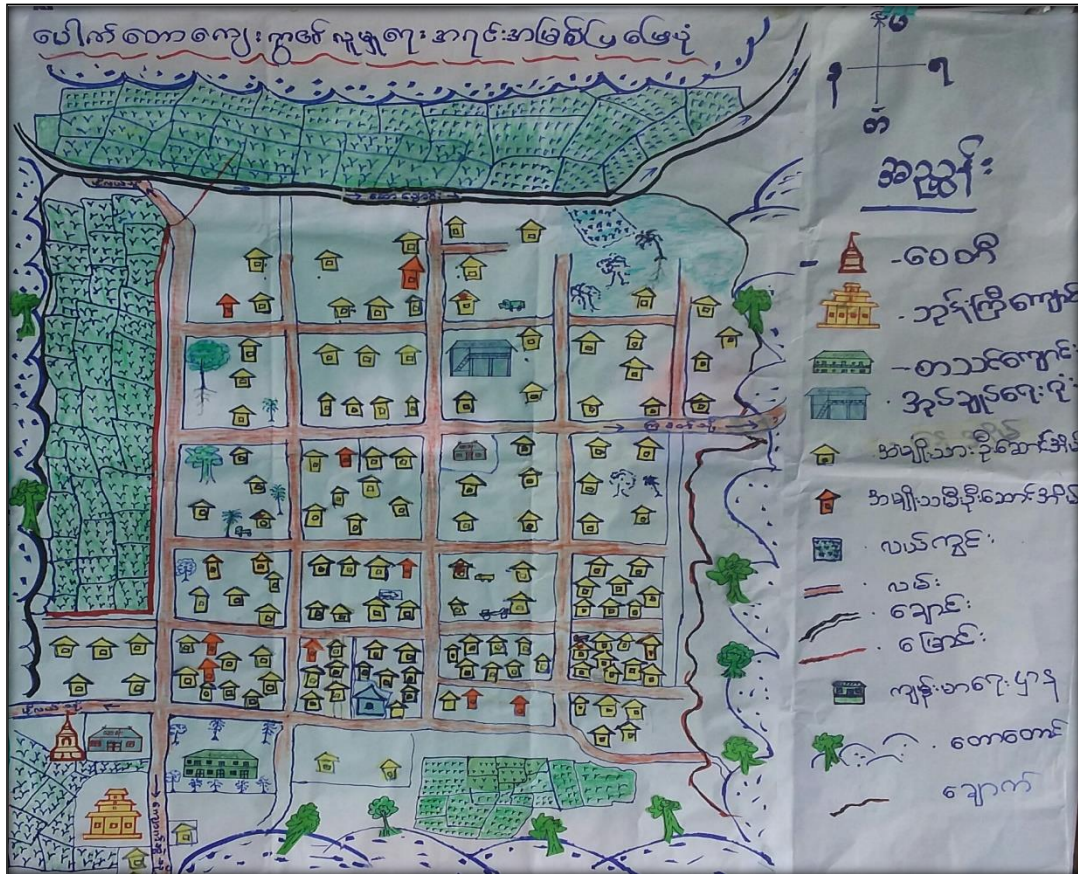 ပေါက်တောကျေးရွာ၏ လူမှုရေး အရင်းအမြစ်ပြ မြေပုံ
မ
န
ရ
တ
အညွှန်း
- စေတီ
ဘုန်းကြီးကျောင်း
- စာသင်ကျောင်း
အုပ်ချုပ်ရေးရုံး
အမျိုးသားဦးဆောင်အိမ်
အမျိုးသမီးဦးဆောင်အိမ်
လယ်ကွင်း
လမ်း
ချောင်း
မြောင်း
ကျန်းမာရေးဌာန
တောတောင်
ချောက်